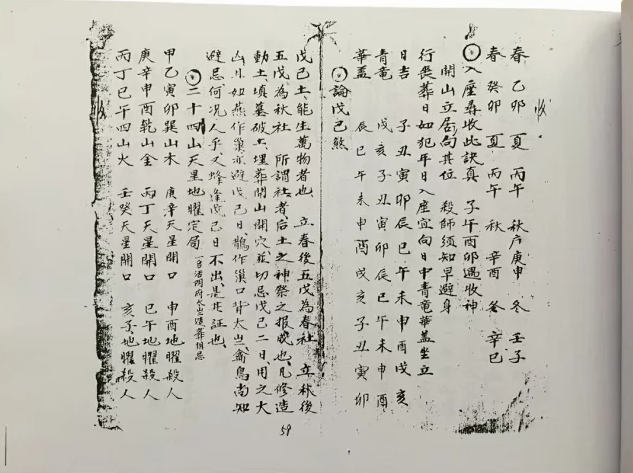 春 乙卯 夏 丙午 秋 庚申 冬 壬子
春 癸卯 夏 丙午 秋 辛酉 冬 辛巳
入座尋收此訣真 子午酉卯遇收神
開山立居向其位 殺師須知早避身
行喪葬日如犯年日入座宜向日中青龍華盖坐立
日吉 子丑寅卯辰巳午未申酉戌亥
青龍 戌亥子丑寅卯辰巳午未申酉
華盖 辰巳午未申酉戌亥子丑寅卯
論戊己煞
戊己土能生萬物者也 立春後五戊為春社 立秋後
五戊為秋社 所謂社者后土之神祭之報成也凡修造
動土填墓破土埋葬開山開穴並切忌戊己二日用之大
凶小如燕作巢亦避戊己日鵲作巢口背太岁禽鳥尚知
避忌何况人乎又蜂逢戊己日不出是其証也
二十四山天星地曜定局
甲乙寅卯巽山木 庚辛天星開口 申酉地曜殺人
庚辛申酉乾山金 丙丁天星開口 巳午地曜殺人
丙丁巳午四山火 壬癸天星開口 亥子地曜殺人
59